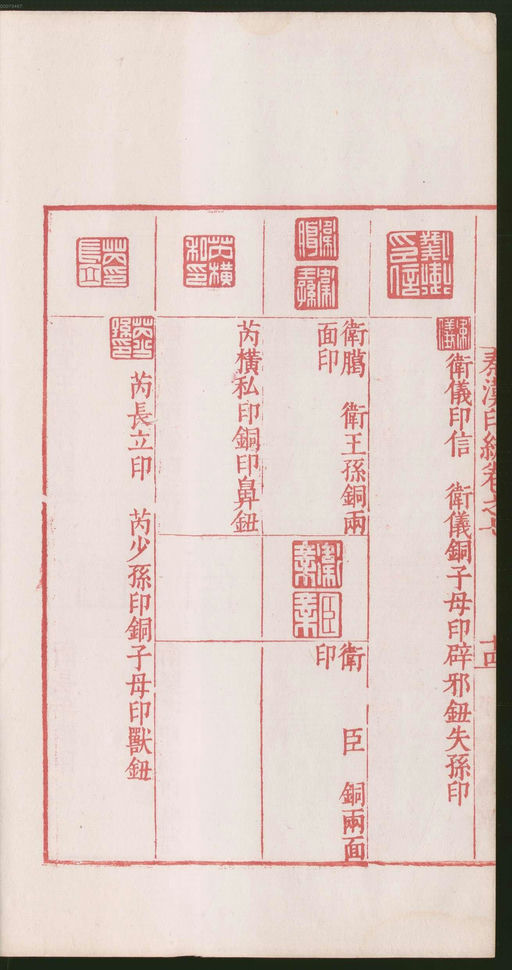 秦漢印統卷之七
十四
衛儀印信　衛儀銅子母印辟邪鈕失孫印
衛臈　衛王孫銅兩
面印
衛　臣　銅兩面
印
芮橫私印銅印鼻鈕
芮長立印　芮少孫印銅子母印獸鈕